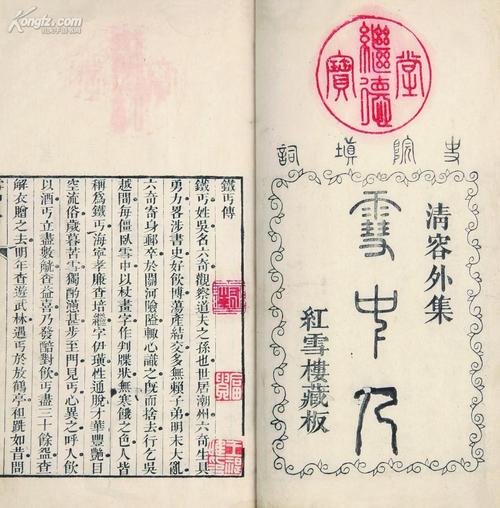 Kongfz.com
繼德堂寶
史院填詞
清容外集
雪中人
紅雪樓藏板
鐵丐傳
鐵丐姓吳名六奇觀察道夫之孫也世居潮州六奇生具
勇力畧涉書史好飲博蕩產結交多無賴子弟明末大亂
六奇寄身郵卒於關河險隘輒心識之旣而捨去行乞吳
越間每僵臥雪中以杖畫字作判牒狀無寒餓之色人皆
稱爲鐵丐海寧孝廉查培繼字伊璜性通脫才華豐艷目
空流俗歲暮苦雪獨酌懣甚步至門見丐心異之呼人飲
以酒丐立盡數甌查益喜乃發醅對飲丐盡三十餘盌查
解衣贈之去明年查遊武林遇丐於放鶴亭袒跣如昔問